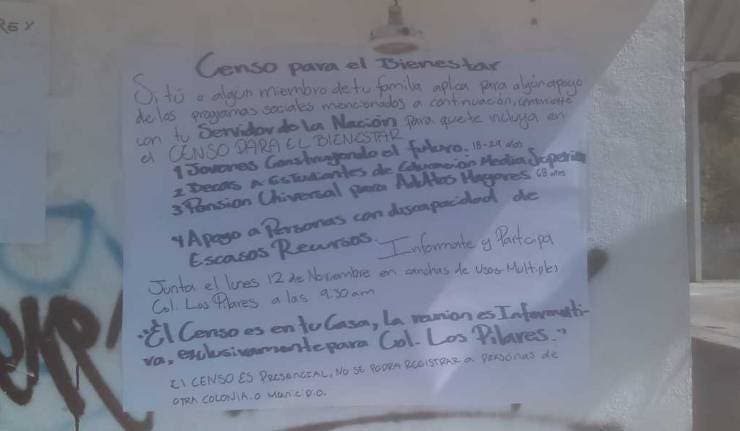 REY
Censo para el Bienestar
Si tú o algún miembro de tu familia aplica para algún apoyo
de los programas sociales mencionados a continuación, comunicate
con tu Servidor de la Nación para que te incluya en
el CENSO PARA EL BIENESTAR
1 Jovenes Construyendo el futuro. 18-29 años
2 Becas a Estudiantes de Educación Media Superior
3 Pension Universal para Adultos Mayores 68 años
4 Apoyo a Personas con discapacidad de
Escasos Recursos.
Informate y Participa
Junta el lunes 12 de Noviembre en canchas de Usos Multiples
Col. Los Pilares a las 9:30 am
"El Censo es en tu Casa, la reunion es Informati-
va, exclusivamente para Col. Los Pilares."
El CENSO ES PRESENCIAL, NO SE PODRA REGISTRAR a personas de
OTRA COLONIA o Municipio.